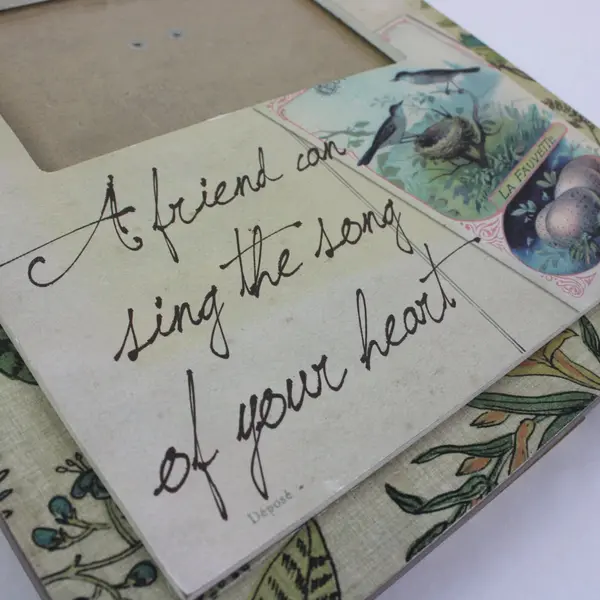 A friend can
sing the song
of your heart
LA FAUVETTE
Déposé.